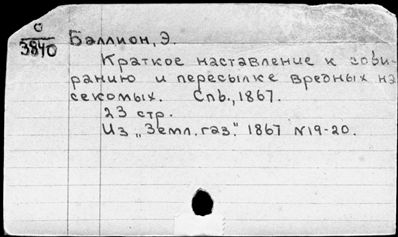 О
3840
Баллион, Э.
Краткое наставление к соби-
ранию и пересылке вредных на
секомых. Спь., 1867.
23 стр.
Из „Земл. газ." 1867 №19-20.